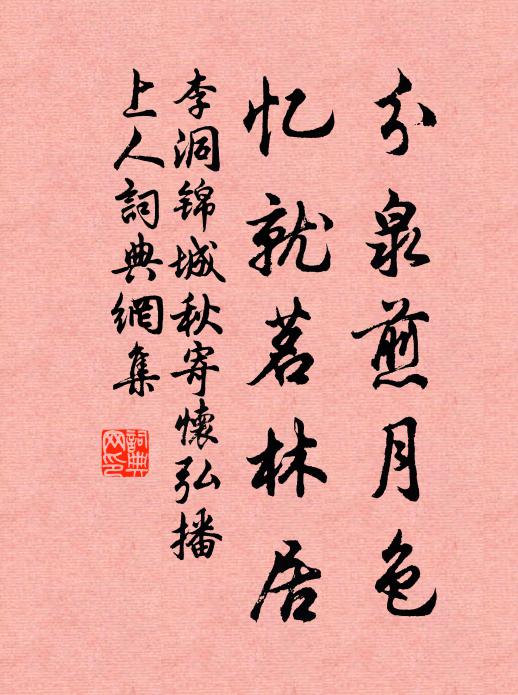 分泉煎月色
忆就茗林居
李洞锦城秋寄懷弘播
上人詞典網集
詞典网印